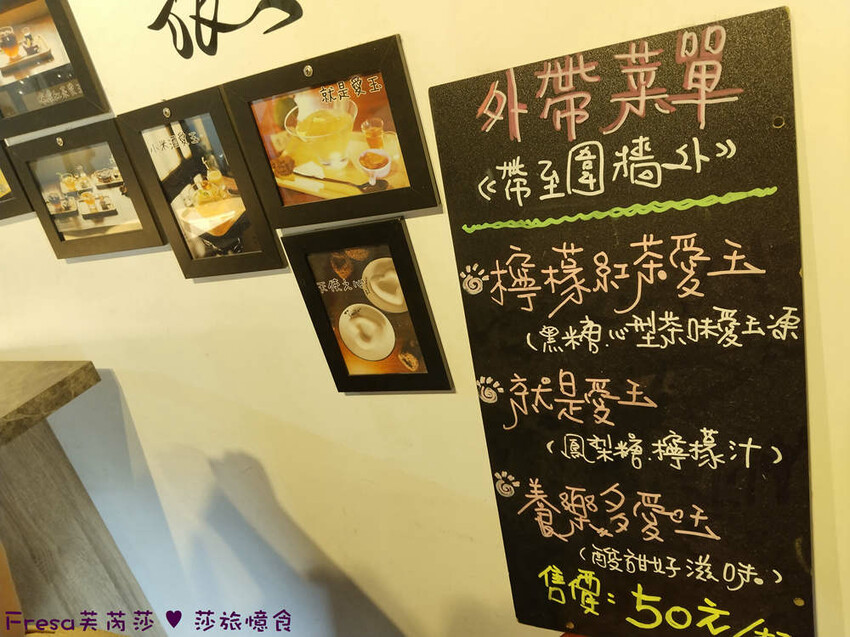 就是愛玉
小米酒愛玉
外帶菜單
《帶至圍牆外》
檸檬紅茶愛玉
(黑糖心型茶味愛玉凍
就是愛玉
(鳳梨糖.檸檬汁)
養樂多愛玉
(酸甜好滋味)
售價:50元/
Fresa芙芮莎 ♥ 莎旅憶食